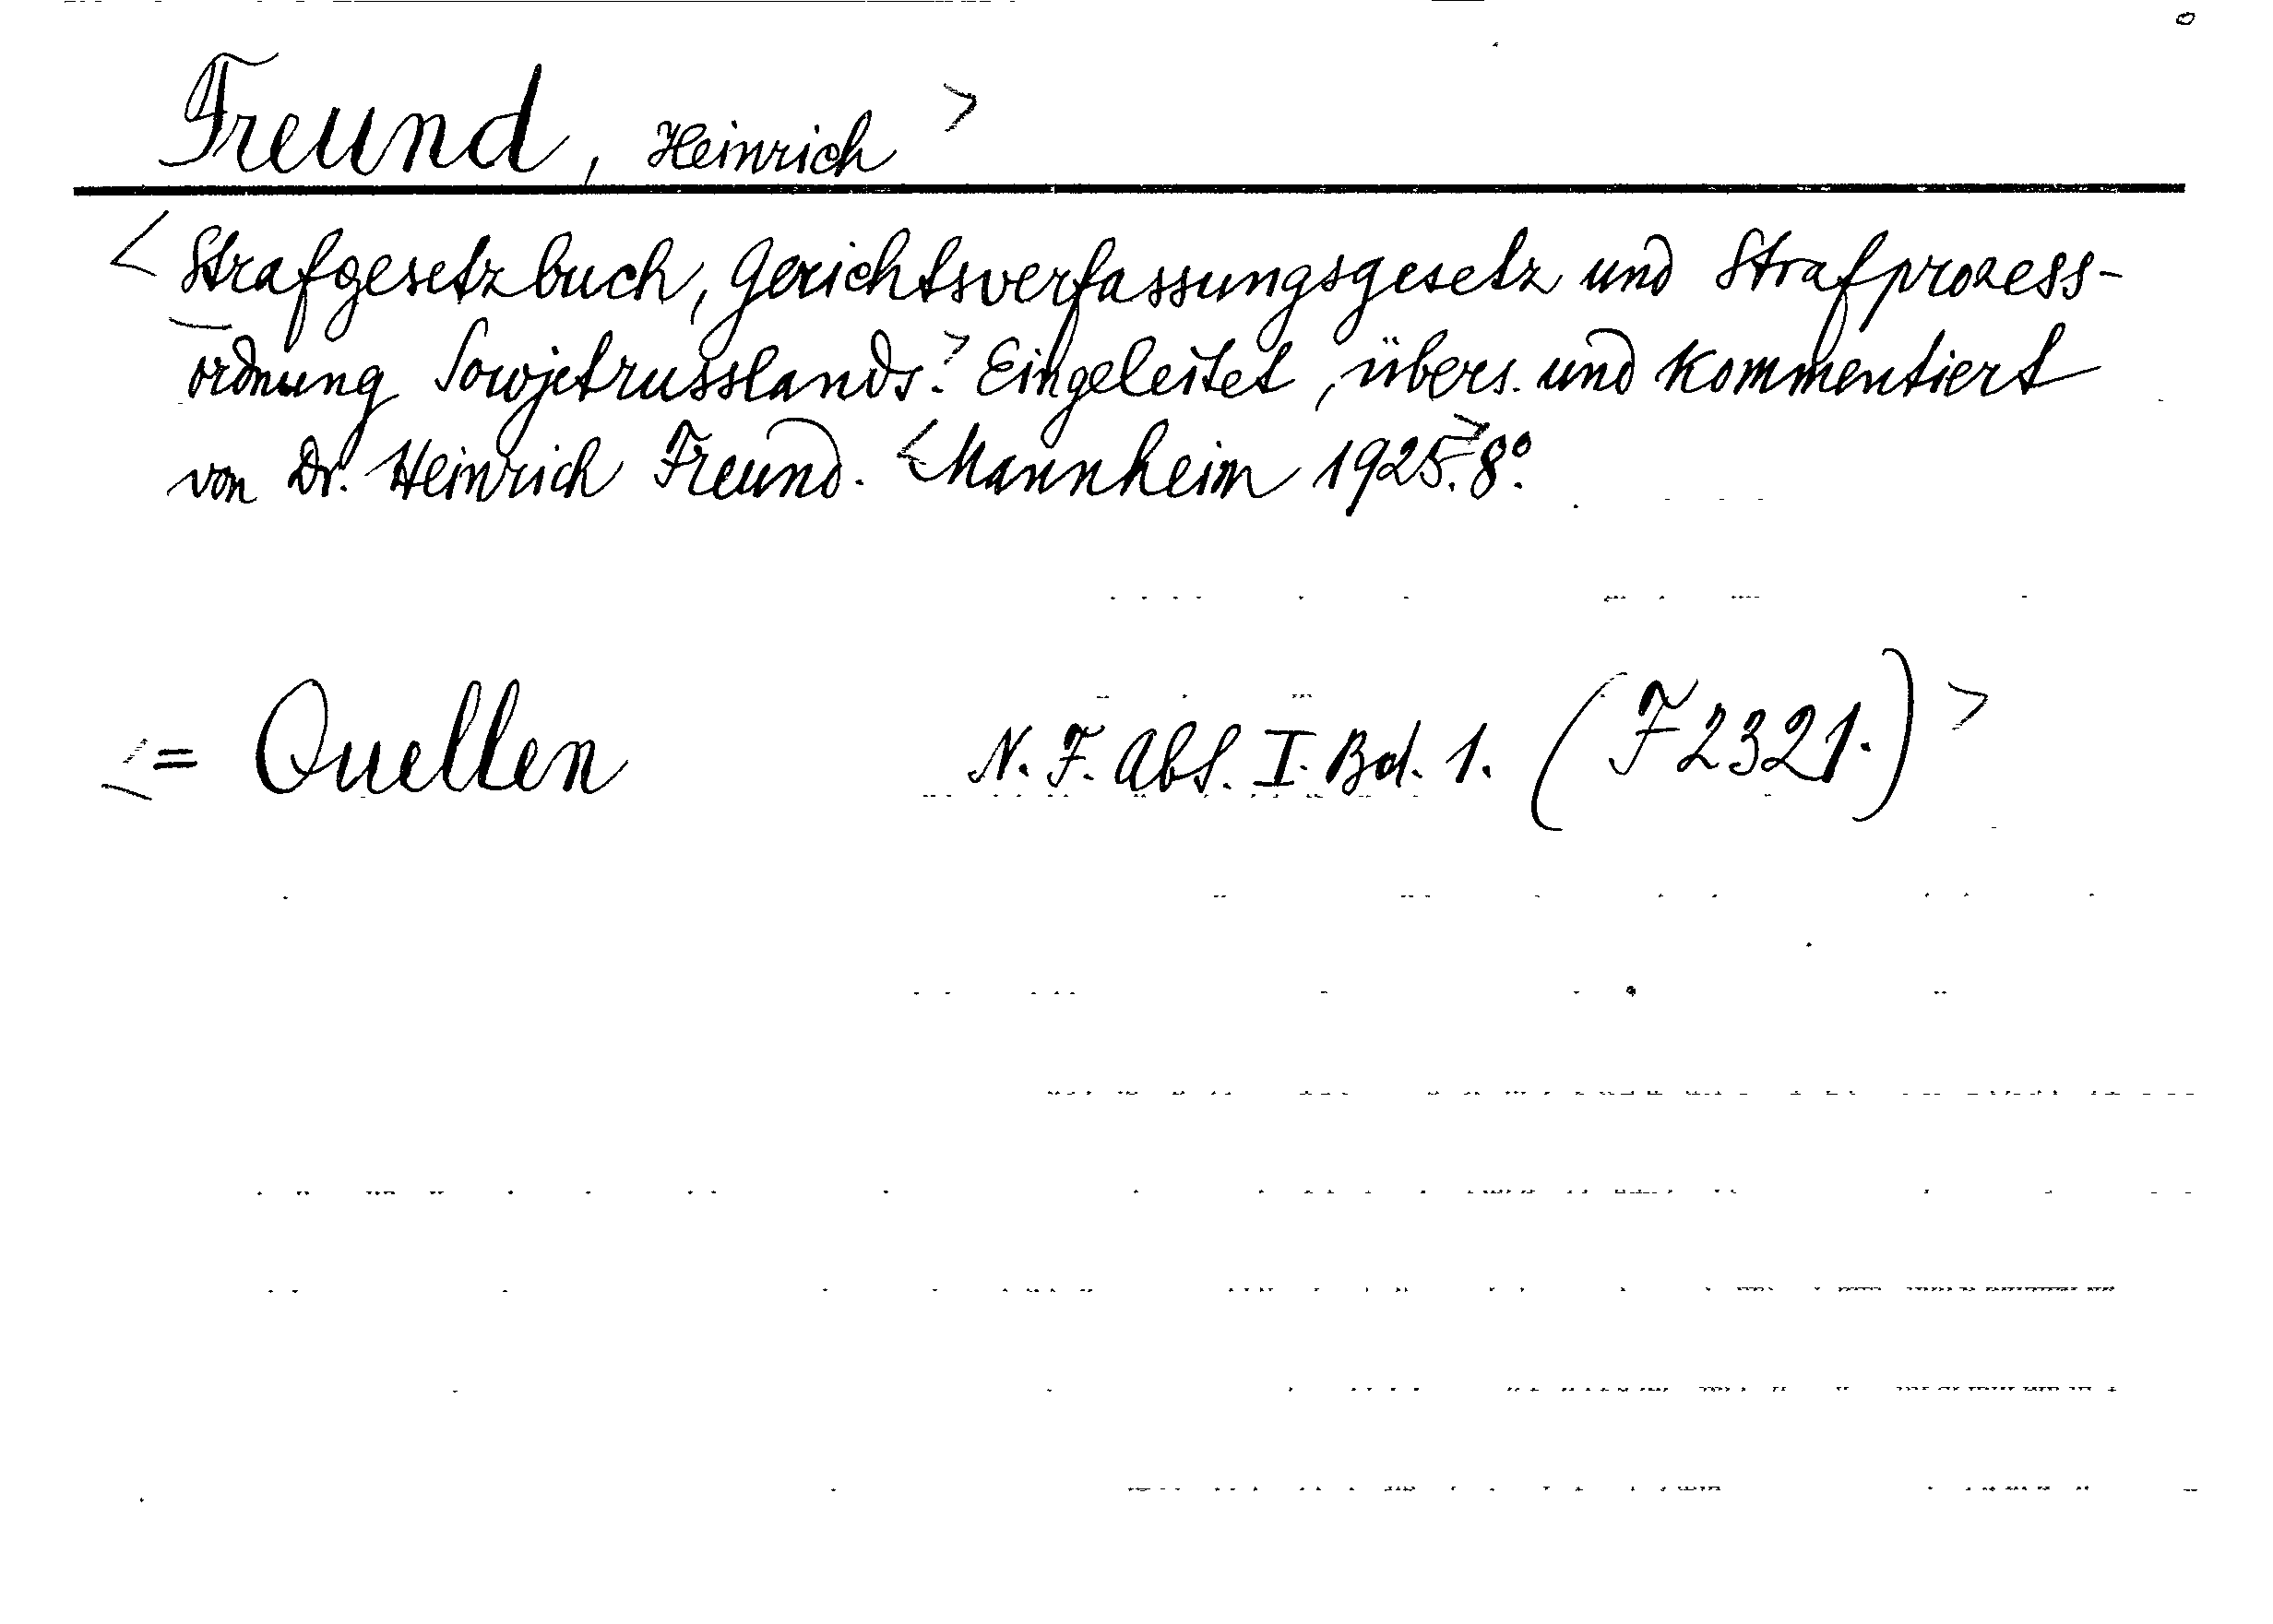 Freund, Heinrich >
< Strafgesetzbuch, Gerichtsverfassungsgesetz und Strafprozess-
ordnung Sowjetrusslands.> Eingeleitet, übers. und kommentiert
von Dr. Heinrich Freund. <Mannheim 1925.> 8°.
<= Quellen N. F. Abt. I. Bd. 1. (F 2321.) >